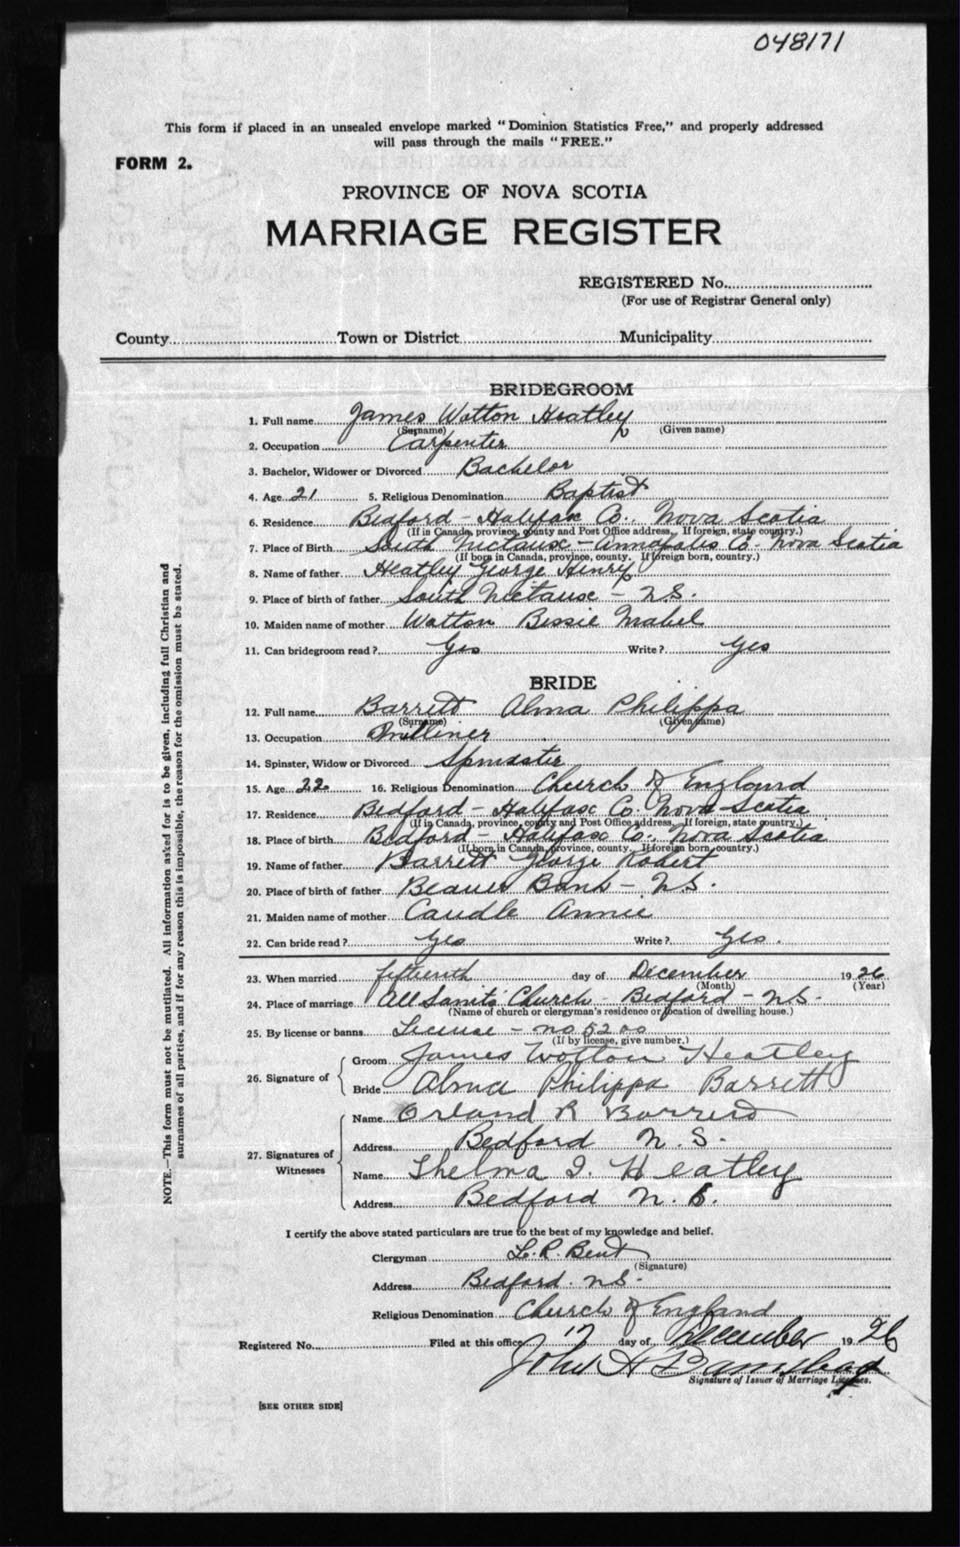 048171
This form if placed in an unsealed envelope marked "Dominion Statistics Free," and properly addressed
will pass through the mails "FREE."
FORM 2.
PROVINCE OF NOVA SCOTIA
MARRIAGE REGISTER
REGISTERED No.
(For use of Registrar General only)
County Town or District Municipality
BRIDEGROOM
1. Full name James Wotton Heatley
(Surname) (Given name)
2. Occupation Carpenter
3. Bachelor, Widower or Divorced Bachelor
4. Age 21 5. Religious Denomination Baptist
6. Residence Bedford - Halifax Co. Nova Scotia
(If in Canada, province, county and Post Office address. If foreign, state country.)
7. Place of Birth South Nictaux - Annapolis Co. Nova Scotia
(If born in Canada, province, county. If foreign born, country.)
8. Name of father Heatley George Henry
9. Place of birth of father South Nictaux - N.S.
10. Maiden name of mother Wotton Bessie Mabel
11. Can bridegroom read? Yes Write? Yes
BRIDE
12. Full name Barrett Alma Philippa
(Surname) (Given name)
13. Occupation Milliner
14. Spinster, Widow or Divorced Spinster
15. Age 22 16. Religious Denomination Church of England
17. Residence Bedford - Halifax Co. Nova Scotia
(If in Canada, province, county and Post Office address. If foreign, state country.)
18. Place of birth Bedford - Halifax Co. Nova Scotia
(If born in Canada, province, county. If foreign born, country.)
19. Name of father Barrett George Robert
20. Place of birth of father Beaver Bank - N.S.
21. Maiden name of mother Caudle Annie
22. Can bride read? Yes Write? Yes.
23. When married fifteenth day of December 1926
(Month) (Year)
24. Place of marriage All Sanits' Church - Bedford - N.S.
(Name of church or clergyman's residence or location of dwelling house.)
25. By license or banns License - no 5200
(If by license, give number.)
26. Signature of Groom James Wotton Heatley
Bride Alma Philippa Barrett
27. Signatures of Witnesses
Name Orland R Barrett
Address Bedford N.S.
Name Thelma I. Heatley
Address Bedford N.S.
I certify the above stated particulars are true to the best of my knowledge and belief.
Clergyman L. R. Bent
(Signature)
Address Bedford. N.S.
Religious Denomination Church of England
Registered No. Filed at this office 17 day of December 1926
John H
Signature of Issuer of Marriage Licenses.
[SEE OTHER SIDE]
NOTE.—This form must not be mutilated. All information asked for is to be given, including full Christian and
surnames of all parties, and if for any reason this is impossible, the reason for the omission must be stated.